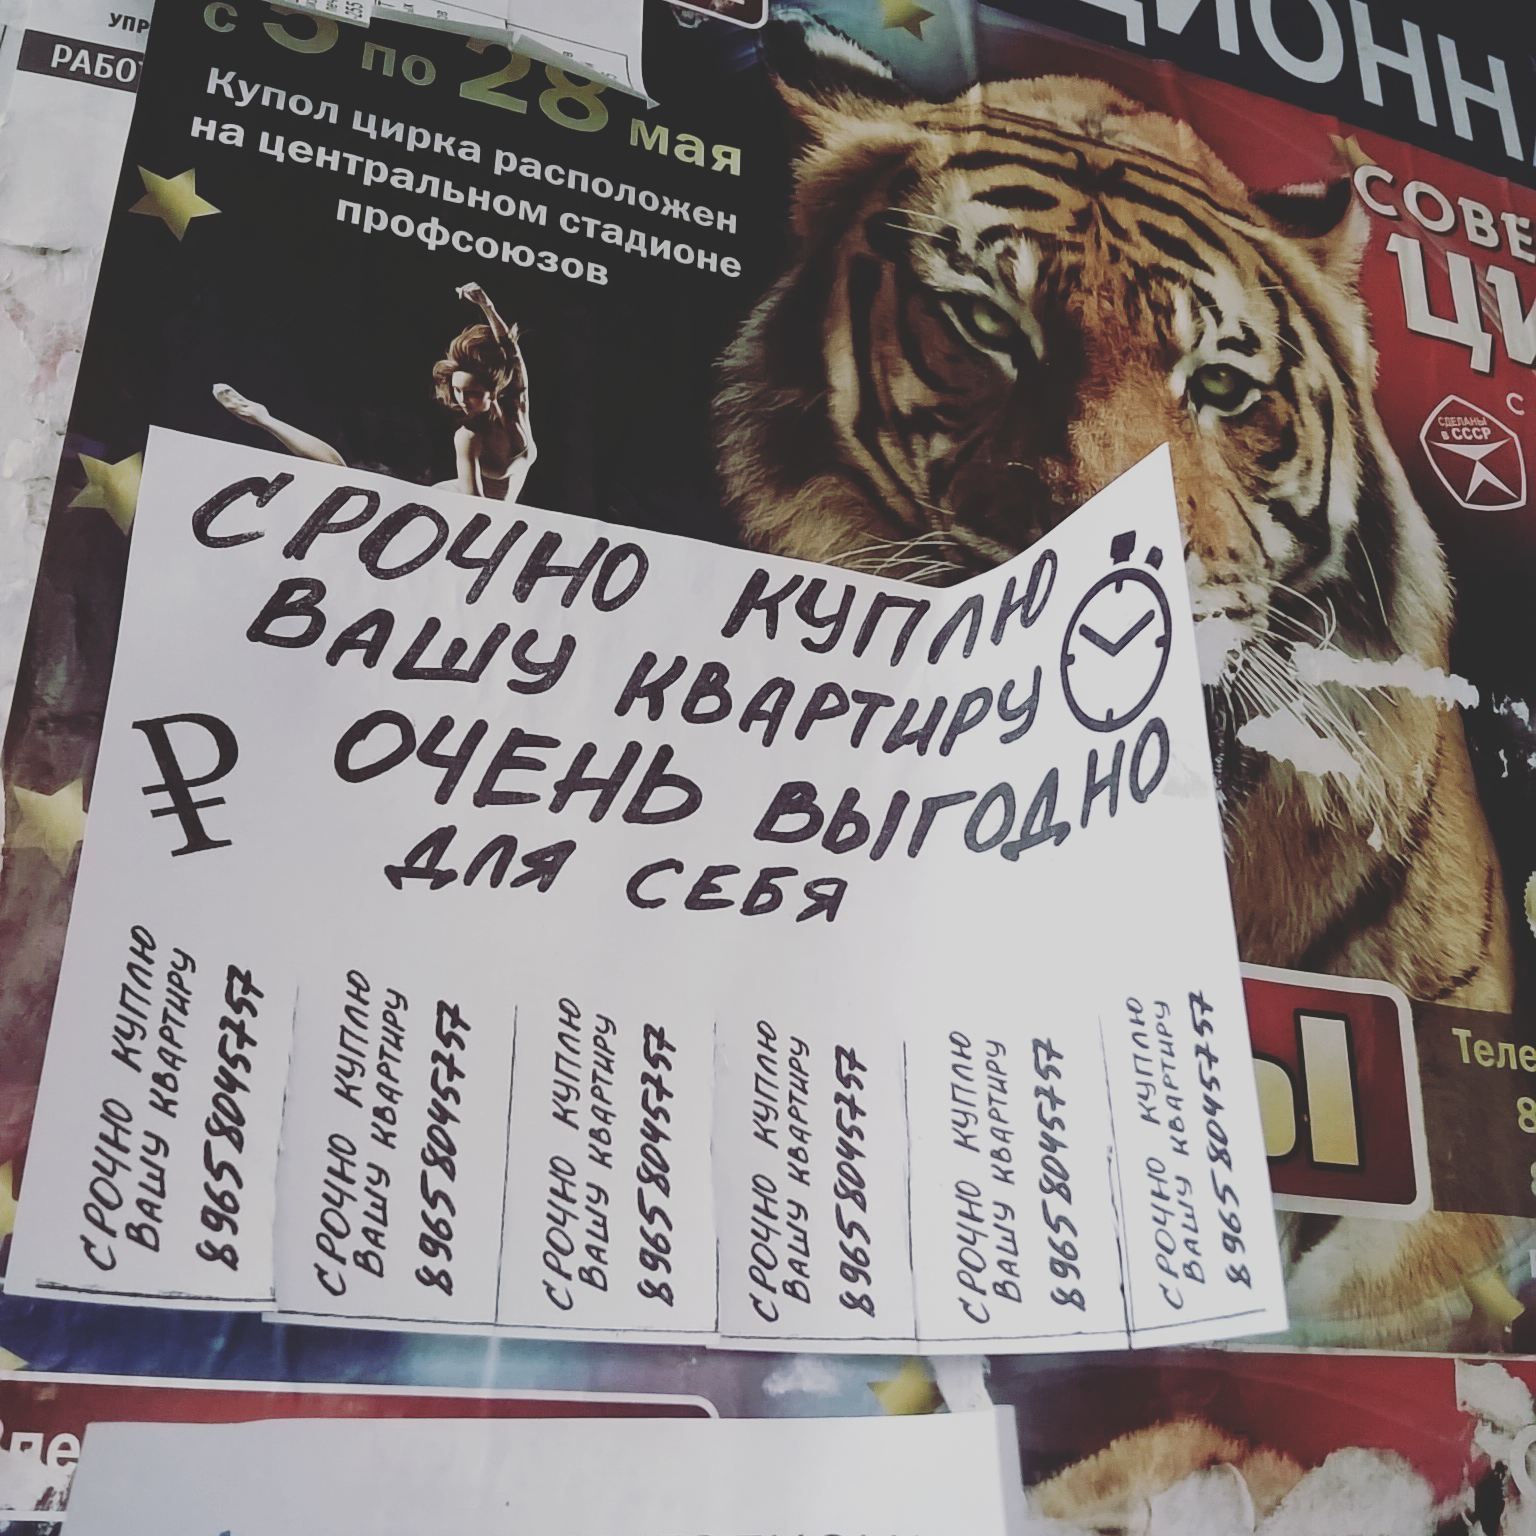 УПР
РАБО
с 5 по 28 мая
Купол цирка расположен
на центральном стадионе
профсоюзов
ЦИОНН
СОВЕ
ЦИ
С
СДЕЛАНЫ
В СССР
СРОЧНО КУПЛЮ
ВАШУ КВАРТИРУ
ОЧЕНЬ ВЫГОДНО
ДЛЯ СЕБЯ
₽
СРОЧНО КУПЛЮ
ВАШУ КВАРТИРУ
89658045757
СРОЧНО КУПЛЮ
ВАШУ КВАРТИРУ
89658045757
СРОЧНО КУПЛЮ
ВАШУ КВАРТИРУ
89658045757
СРОЧНО КУПЛЮ
ВАШУ КВАРТИРУ
89658045757
СРОЧНО КУПЛЮ
ВАШУ КВАРТИРУ
89658045757
СРОЧНО КУПЛЮ
ВАШУ КВАРТИРУ
89658045757
Ы
Теле
8